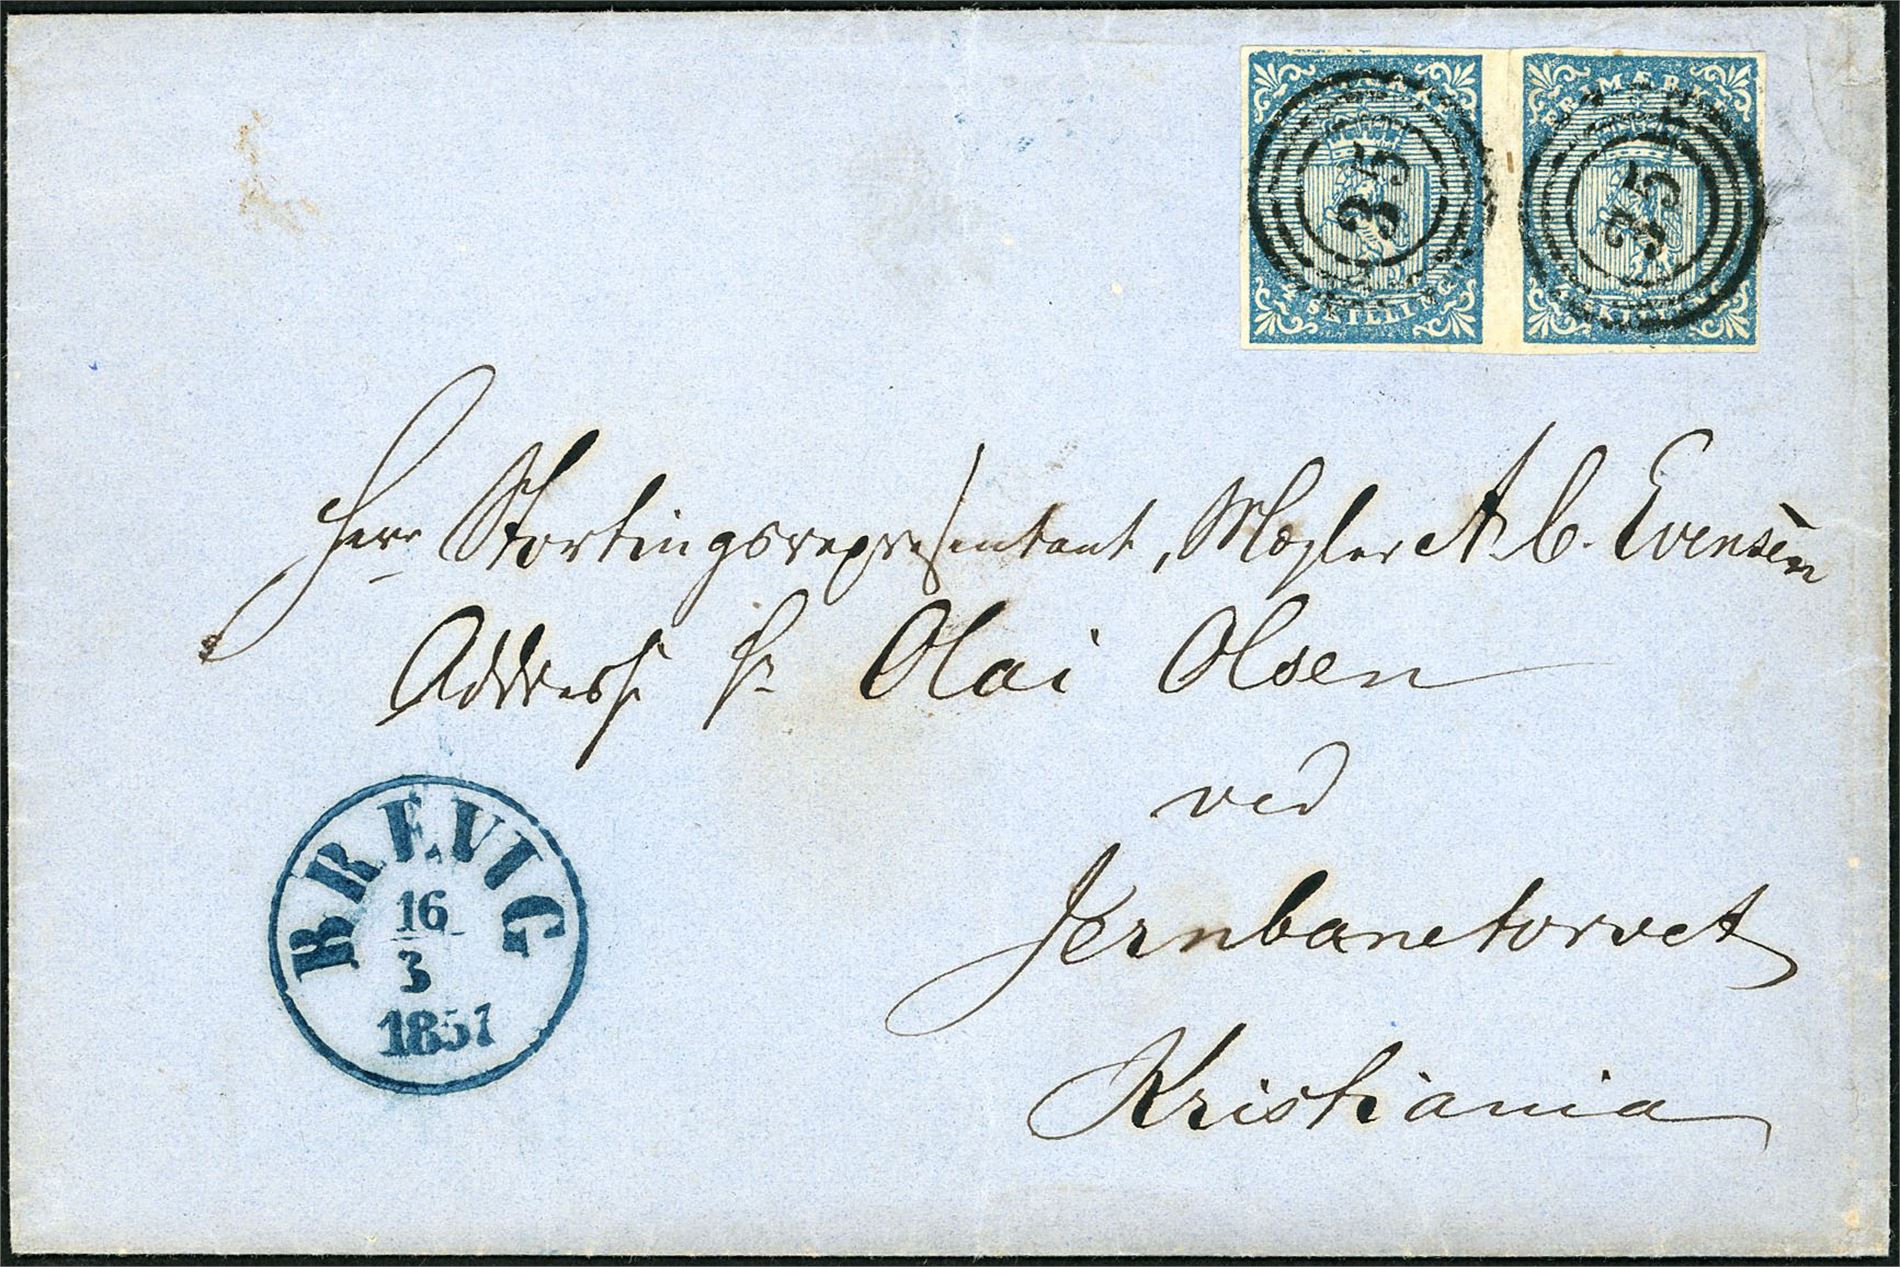 FRIMÆRKE FRIMÆRKE
35 35
4 SKILLING 4 SKILLING
Herr Stortingsrepresentant, Mægler A. C. Evensen
Addresse Hr Olai Olsen
ved
Jernbanetorvet
Kristiania
BREVIG
16
3
1857